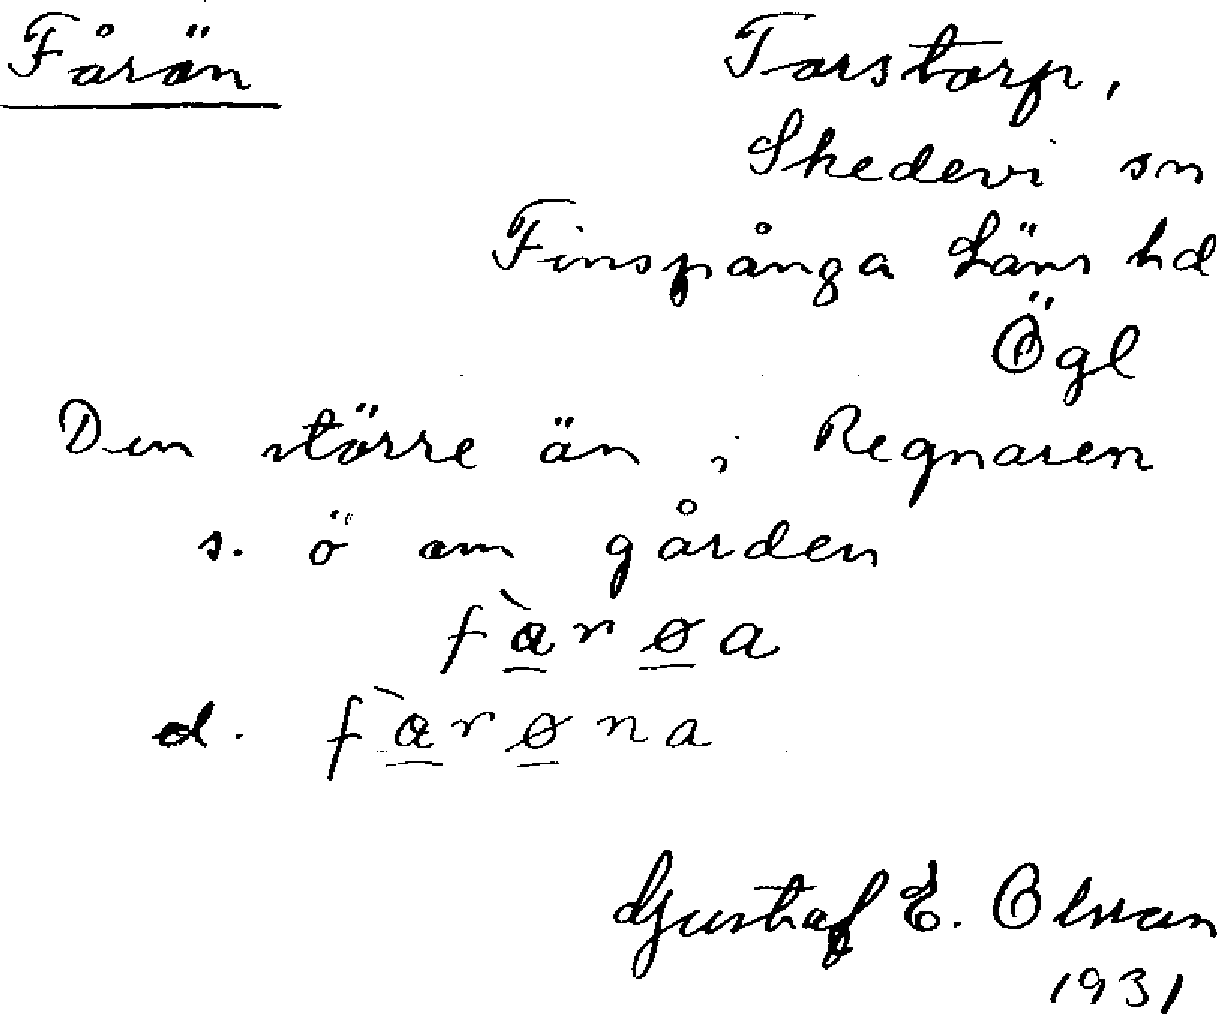 Fårön
Torstorp,
Skedevi sn
Finspånga Läns hd
Ögl
Den större ön i Regnaren
s. ö om gården
fàrøa
d. fàrøna
Gustaf E. Olsson
1931